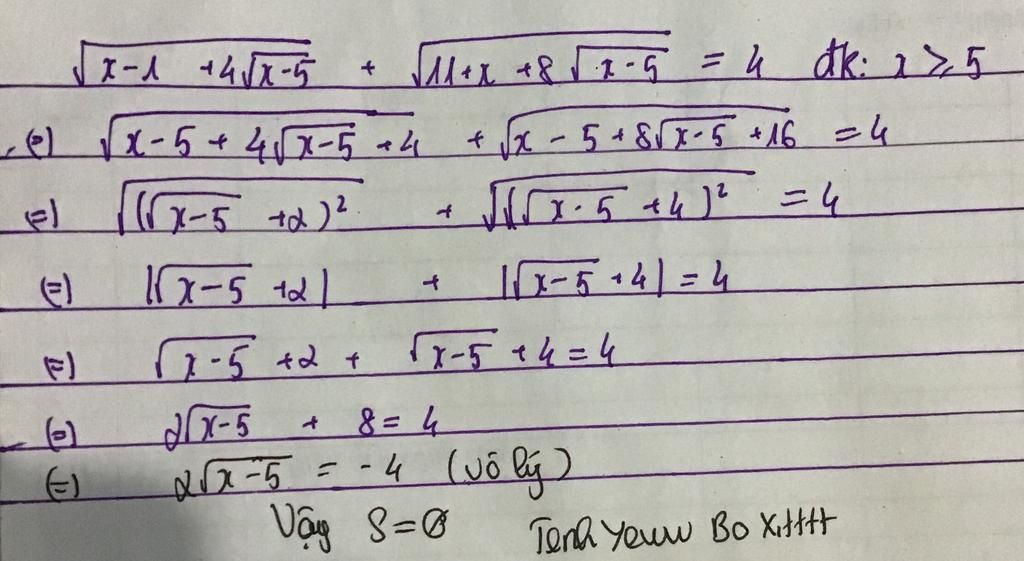 √(x-1 +4√(x-5)) + √(11+x +8√(x-5)) = 4 đk: x ⩾ 5
(=) √(x-5 + 4√(x-5) +4) + √(x - 5 + 8√(x-5) +16) = 4
(=) √((√(x-5) +2)²) + √((√(x-5) +4)²) = 4
(=) |√(x-5) +2| + |√(x-5) +4| = 4
(=) √(x-5) +2 + √(x-5) +4 = 4
(=) 2√(x-5) + 8 = 4
(=) 2√(x-5) = -4 (vô lý)
Vậy S=∅ Tenh Yeuw Bo